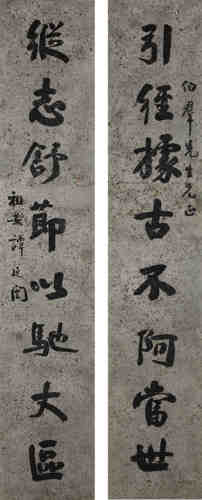 引經據古不阿當世
伯羣先生先正
縱志舒節以馳大區
祖安譚延闓